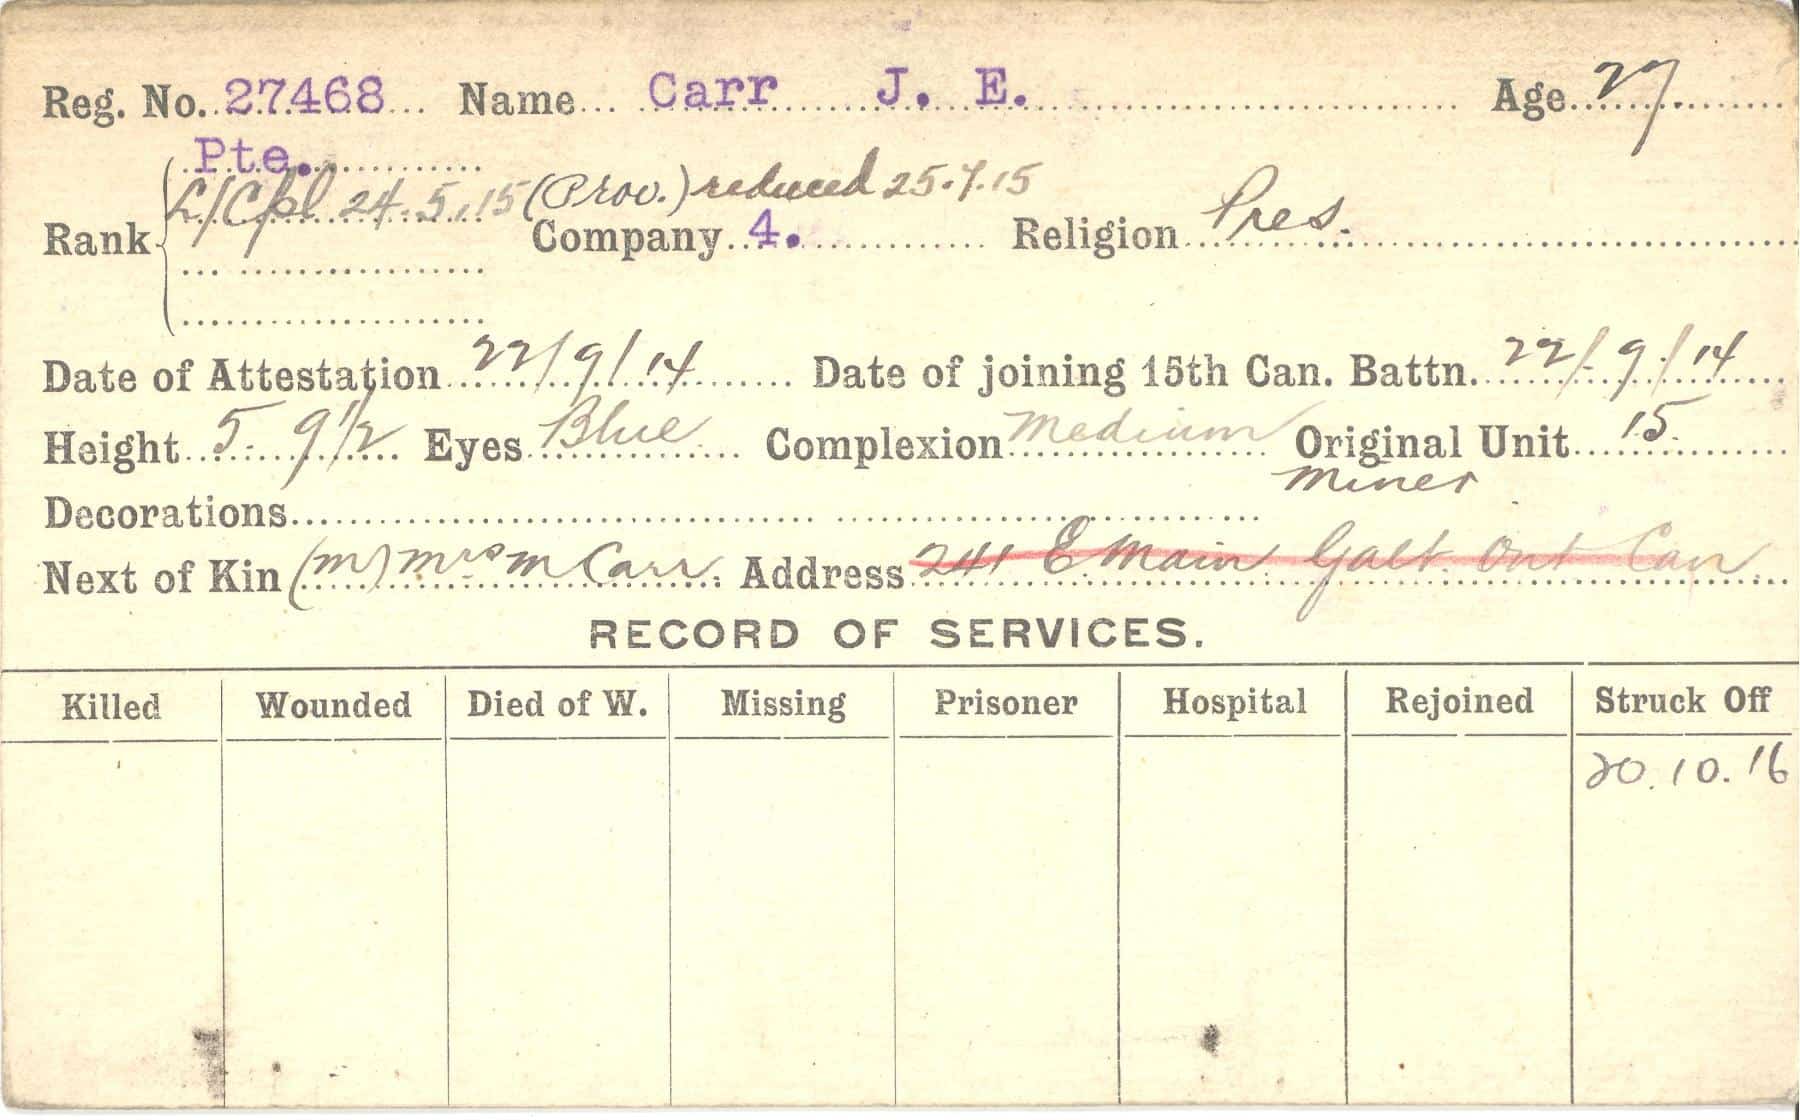 Reg. No. 27468 Name Carr J. E. Age 27
Pte.
L/Cpl 24.5.15 (Prov.) reduced 25.7.15
Rank Company 4. Religion Pres.
Date of Attestation 22/9/14 Date of joining 15th Can. Battn. 22/9/14
Height 5. 9 1/2 Eyes Blue Complexion Medium Original Unit 15.
Miner
Decorations
Next of Kin (M) Mrs M Carr. Address 241 E Main Galt. Ont Can.
RECORD OF SERVICES.
Killed Wounded Died of W. Missing Prisoner Hospital Rejoined Struck Off
20.10.16